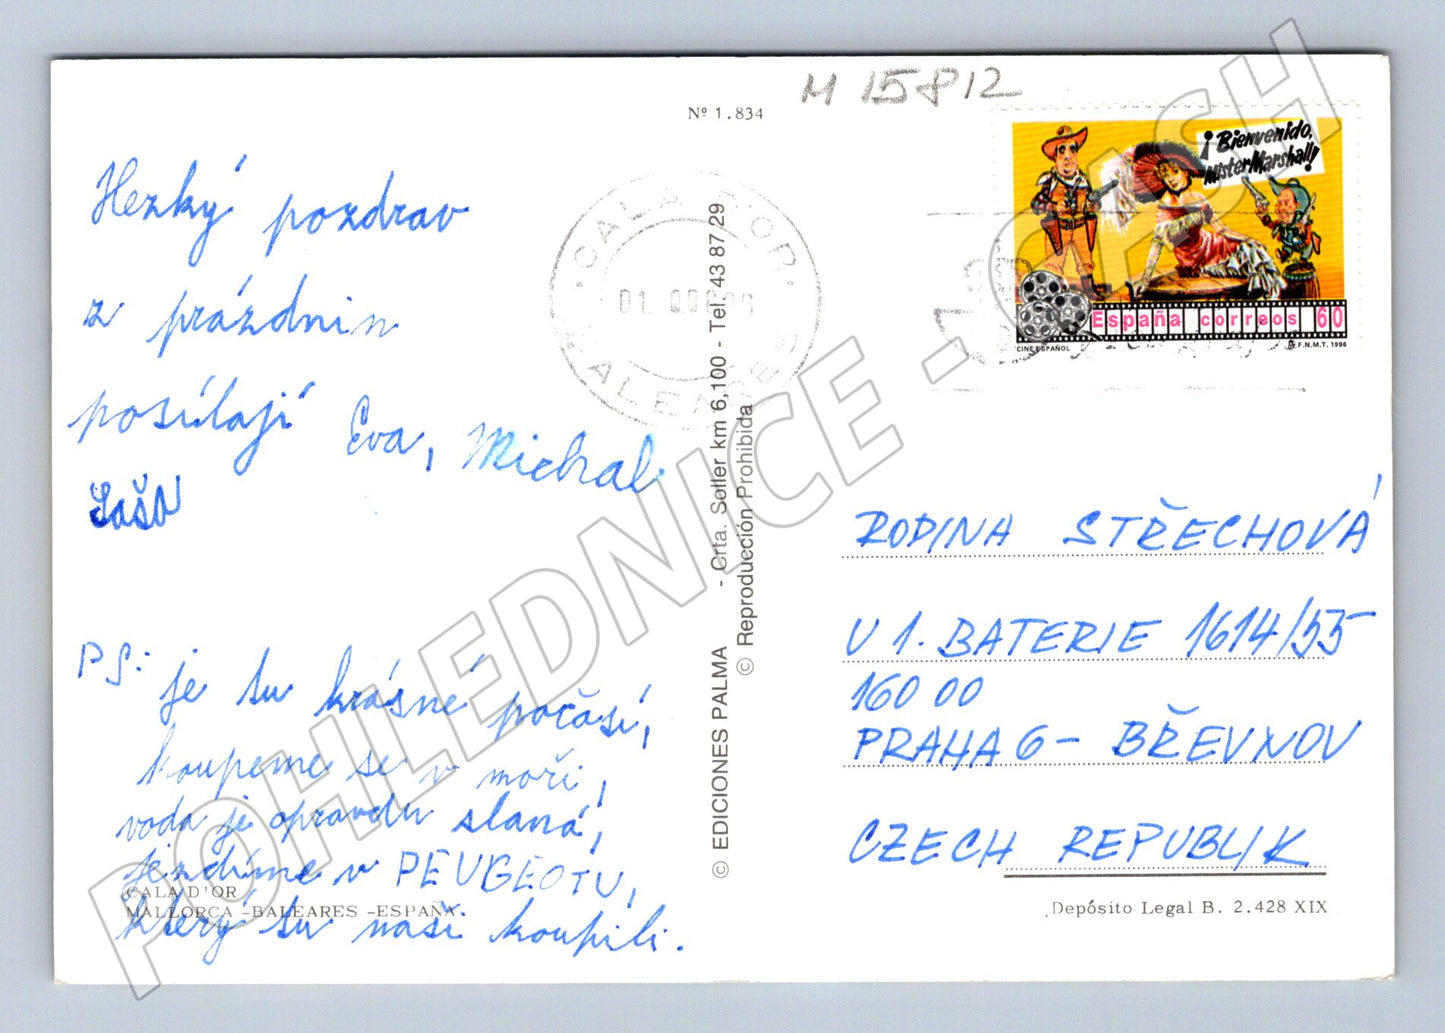 M 15812
Nº 1.834
Hezký pozdrav
z prázdnin
posílají Eva, Michal
Saša
PS: je tu krásné počasí,
koupeme se v moři,
voda je opravdu slaná,
jezdíme v PEUGEOTU,
který tu naši koupili.
CALA D'OR
MALLORCA -BALEARES -ESPAÑA
© EDICIONES PALMA - Crta. Soller km 6,100 - Tel. 43 87 29
© Reproducción Prohibida
CALA D'OR
01
¡Bienvenido,
Mister Marshall!
España correos 60
CINE ESPAÑOL
F.N.M.T. 1996
RODINA STŘECHOVÁ
U 1. BATERIE 1614/55
160 00
PRAHA 6 - BŘEVNOV
CZECH REPUBLIK
Depósito Legal B. 2.428 XIX
POHLEDNICE - CASH